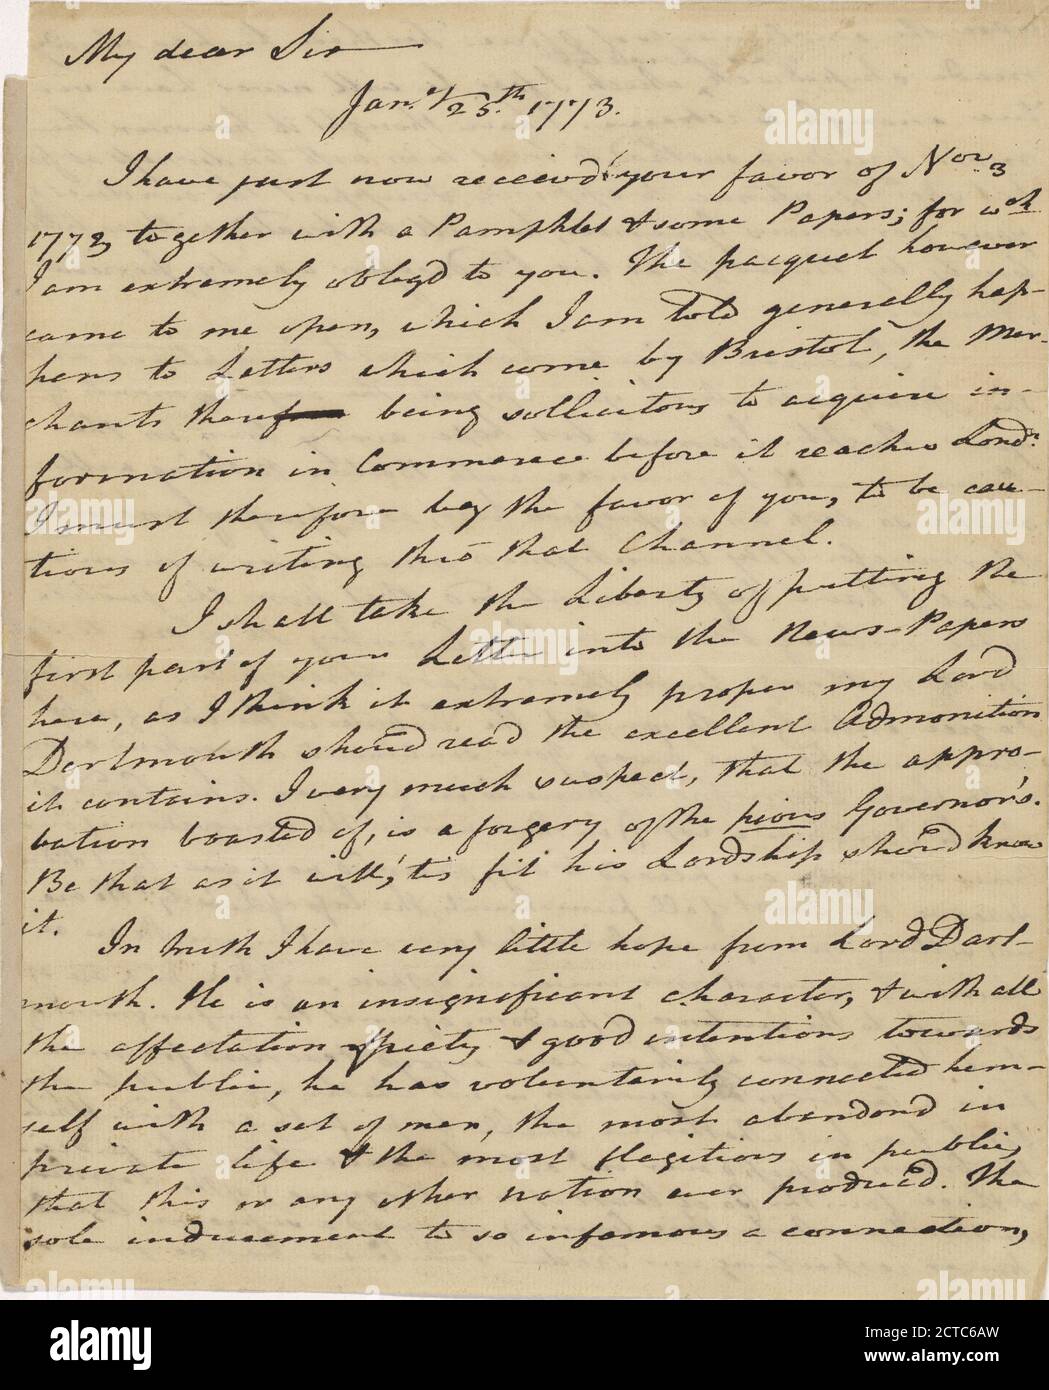 My dear Sir
Jan.y 25.th 1773.
I have just now receiev'd your favor of Nov.r 3
1772, together with a Pamphlet & some Papers; for wch
I am extremely oblig'd to you. The pacquet however
came to me open, which I am told generally hap-
pens to Letters which come by Bristol, the Mer-
chants there being sollicitous to acquire in-
formation in Commerce before it reaches Lond.n
I must therefore beg the favor of you, to be cau-
tious of writing thro that Channel.
I shall take the Liberty of putting the
first part of your Letter into the News-Papers
here, as I think it extremely proper my Lord
Dartmouth should read the excellent Admonition
it contains. I very much suspect, that the appro-
bation boasted of, is a forgery of the pious Governor's.
Be that as it will, 'tis fit his Lordship should know
it.
In truth I have very little hope from Lord Dart-
mouth. He is an insignificant character, & with all
the affectation of piety & good intentions towards
the public, he has voluntarily connected him-
self with a set of men, the most abandon'd in
private life & the most flagitious in public,
that this or any other nation ever produc'd. The
sole inducement to so infamous a connection,
alamy
alamy
alamy
alamy
alamy
alamy
alamy
a
a
a
a
a
alamy
Image ID: 2CTC6AW
www.alamy.com